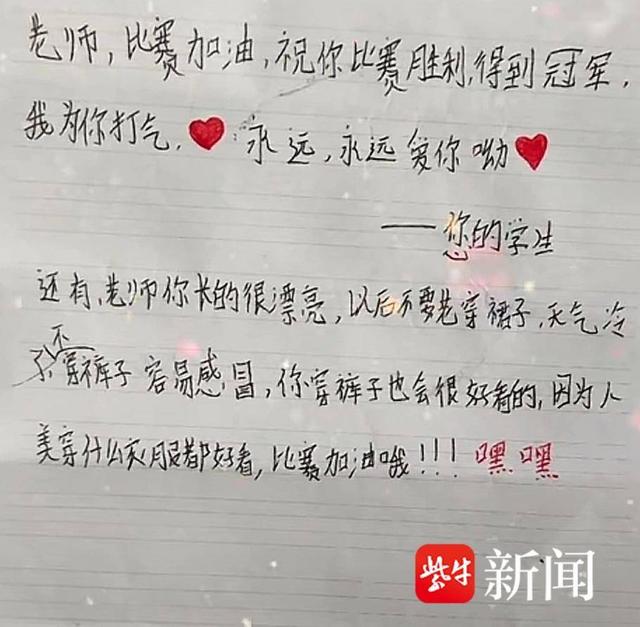 老师，比赛加油，祝你比赛胜利，得到冠军，
我为你打气，❤永远，永远爱你呦❤
——您的学生
还有，老师你长的很漂亮，以后不要老穿裙子，天气冷
了，不穿裤子容易感冒，你穿裤子也会很好看的，因为人
美穿什么衣服都好看，比赛加油哦！！！嘿嘿
紫牛新闻